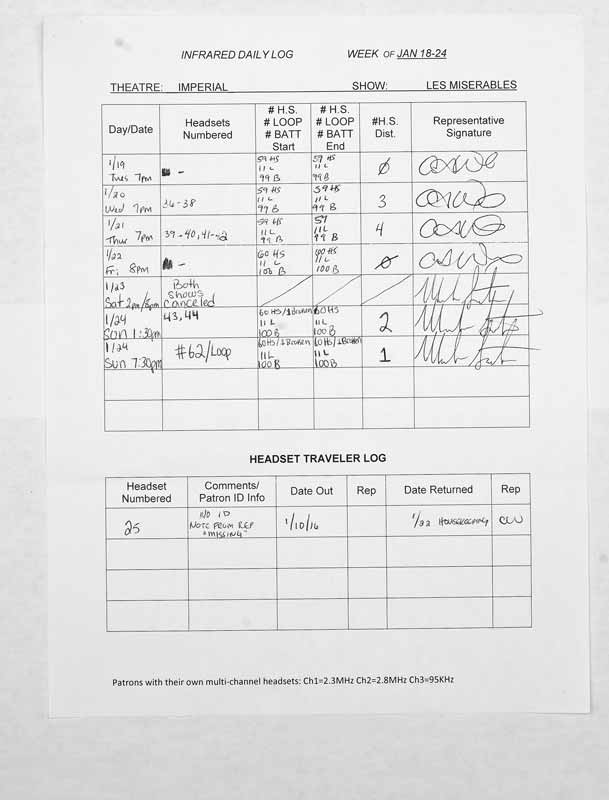 INFRARED DAILY LOG WEEK OF JAN 18-24
THEATRE: IMPERIAL SHOW: LES MISERABLES
Day/Date Headsets Numbered # H.S. # LOOP # BATT Start # H.S. # LOOP # BATT End #H.S. Dist. Representative Signature
1/19 Tues 7pm - 59 HS 11 L 99 B 59 HS 11 L 99 B Ø
1/20 Wed 7pm 36-38 59 HS 11 L 99 B 59 HS 11 L 99 B 3
1/21 Thur 7pm 39-40, 41-42 59 HS 11 L 99 B 59 11 L 99 B 4
1/22 Fri 8pm - 60 HS 11 L 100 B 60 HS 11 L 100 B Ø
1/23 Sat 2pm/8pm Both Shows canceled
1/24 Sun 1:30pm 43, 44 60 HS/1 Broken 11 L 100 B 60 HS 11 L 100 B 2
1/24 Sun 7:30pm #62/Loop 60 HS/1 Broken 11 L 100 B 60 HS/1 Broken 11 L 100 B 1
HEADSET TRAVELER LOG
Headset Numbered Comments/ Patron ID Info Date Out Rep Date Returned Rep
25 NO ID NOTE FROM REP "MISSING" 1/10/16 1/22 HOUSEKEEPING CW
Patrons with their own multi-channel headsets: Ch1=2.3MHz Ch2=2.8MHz Ch3=95KHz